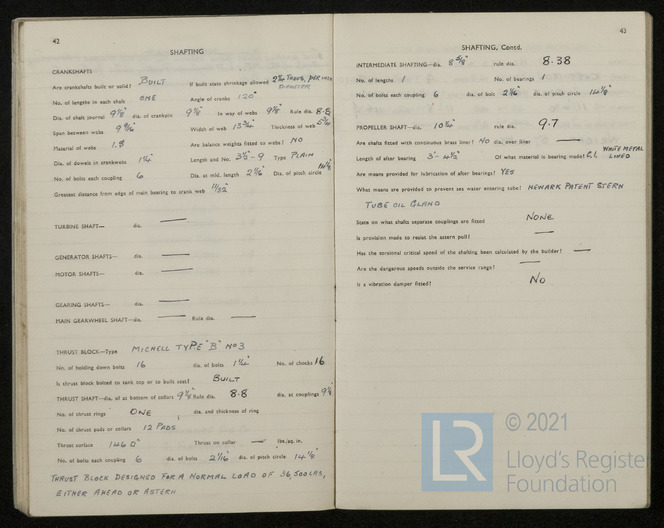 42
SHAFTING
CRANKSHAFTS
Are crankshafts built or solid? BUILT If built state shrinkage allowed PER INCH DIAMETER
No. of lengths in each shaft ONE Angle of cranks 120°
Dia. of shaft journal 9 7/8" dia. of crankpin 9 7/8" In way of webs 9 7/8" Rule dia. 8.8
Span between webs Width of web 13 3/4" Thickness of web
Material of webs I.S Are balance weights fitted to webs? NO
Dia. of dowels in crankwebs 1 1/4" Length and No. 3 1/2" - 9 Type PLAIN
No. of bolts each coupling 6 Dia. at mid. length 2 1/16" Dia. of pitch circle 14 1/8"
Greatest distance from edge of main bearing to crank web 11/32"
TURBINE SHAFT— dia. —
GENERATOR SHAFTS— dia. —
MOTOR SHAFTS— dia. —
GEARING SHAFTS— dia. —
MAIN GEARWHEEL SHAFT—dia. — Rule dia. —
THRUST BLOCK—Type MICHELL TYPE "B" No 3
No. of holding down bolts 16 dia. of bolts 1 1/4" No. of chocks 16
Is thrust block bolted to tank top or to built seat? BUILT
THRUST SHAFT—dia. at bottom of collars 9 7/8" Rule dia. 8.8 dia. at couplings 9 7/8
No. of thrust rings ONE dia. and thickness of ring
No. of thrust pads or collars 12 PADS
Thrust surface 146 □" Thrust on collar — lbs./sq. in.
No. of bolts each coupling 6 dia. of bolts 2 1/16" dia. of pitch circle 14 1/8"
THRUST BLOCK DESIGNED FOR A NORMAL LOAD OF 36,500 LBS,
EITHER AHEAD OR ASTERN
43
SHAFTING, Contd.
INTERMEDIATE SHAFTING—dia. 8 5/8" rule dia. 8.38
No. of lengths 1 No. of bearings 1
No. of bolts each coupling 6 dia. of bolt 2 1/16" dia. of pitch circle 14 1/8"
PROPELLER SHAFT—dia. 10 1/4" rule dia. 9.7
Are shafts fitted with continuous brass liner? NO dia. over liner —
Length of after bearing 3'- 4 1/2" Of what material is bearing made? C.I. WHITE METAL LINED
Are means provided for lubrication of after bearing? YES
What means are provided to prevent sea water entering tube? NEWARK PATENT STERN
TUBE OIL GLAND
State on what shafts separate couplings are fitted NONE
Is provision made to resist the astern pull? —
Has the torsional critical speed of the shafting been calculated by the builder? —
Are the dangerous speeds outside the service range? —
Is a vibration damper fitted? NO
LR
© 2021
Lloyd's Register
Foundation